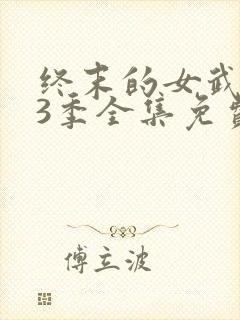 终末的女武
3季全集免费
傅立波